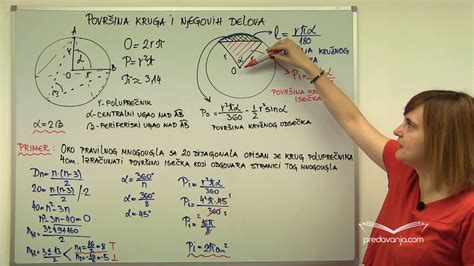 POVRŠINA KRUGA I NEGOVIH DELOVA
A
B
O
α
β
O = 2rπ
P = r²π
π ≈ 3,14
r-POLUPREČNIK
α-CENTRALNI UGAO NAD AB
β-PERIFERISKI UGAO NAD AB
α = 2β
r
α
O
l = rπα/180
KRUŽNOG
Pi =
POVRŠINA
KRUŽNOG
ISEČKA
Po = r²πα/360 - 1/2 r² sin α
POVRŠINA KRUŽNOG ODSEČKA
PRIMER: OKO PRAVILNOG MNOGOUGLA SA 20 DIJAGONALA OPISAN JE KRUG POLUPREČNIKA
4cm. IZRAČUNATI POVRŠINU ISEČKA KOJI ODGOVARA STRANICI TOG MNOGOUGLA
Dn = n(n-3)/2
20 = n(n-3)/2
40 = n²-3n
n²-3n-40=0
n1/2 = 3±√9+160/2
n1/2 = 3±13/2
n1 = 16/2 = 8 T
n2 = -10/2 = -5 ⊥
α = 360°/n
α = 360°/8
α = 45°
Pi = r²πα/360
Pi = 4²π45/360
Pi = 16π/8
Pi = 2π cm²
predavanja.com